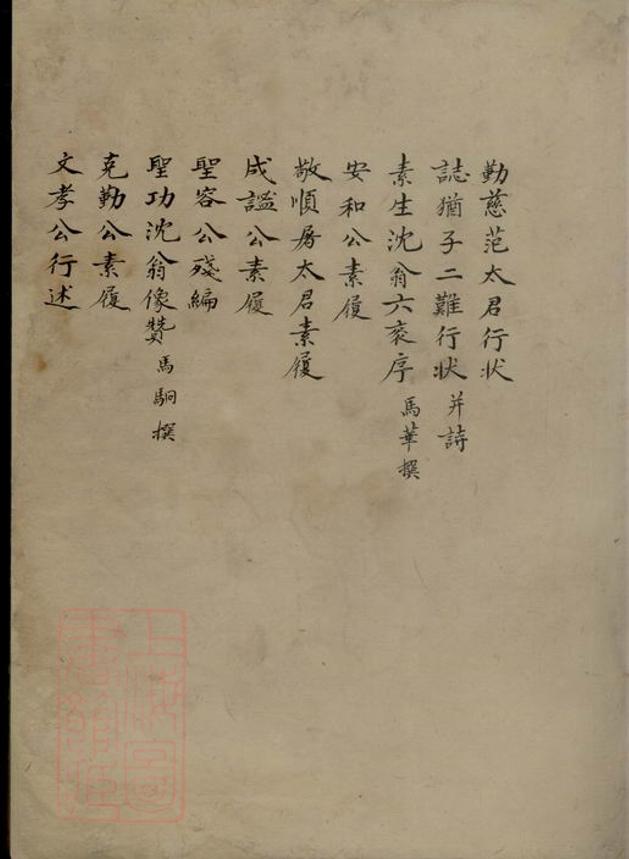 勤慈范太君行状
誌猶子二難行状 并詩
素生沈翁六袠序 馬華撰
安和公素履
敬順屠太君素履
成謐公素履
聖容公殘編
聖功沈翁像贊 馬駉撰
克勤公素履
文孝公行述
上海圖書館藏